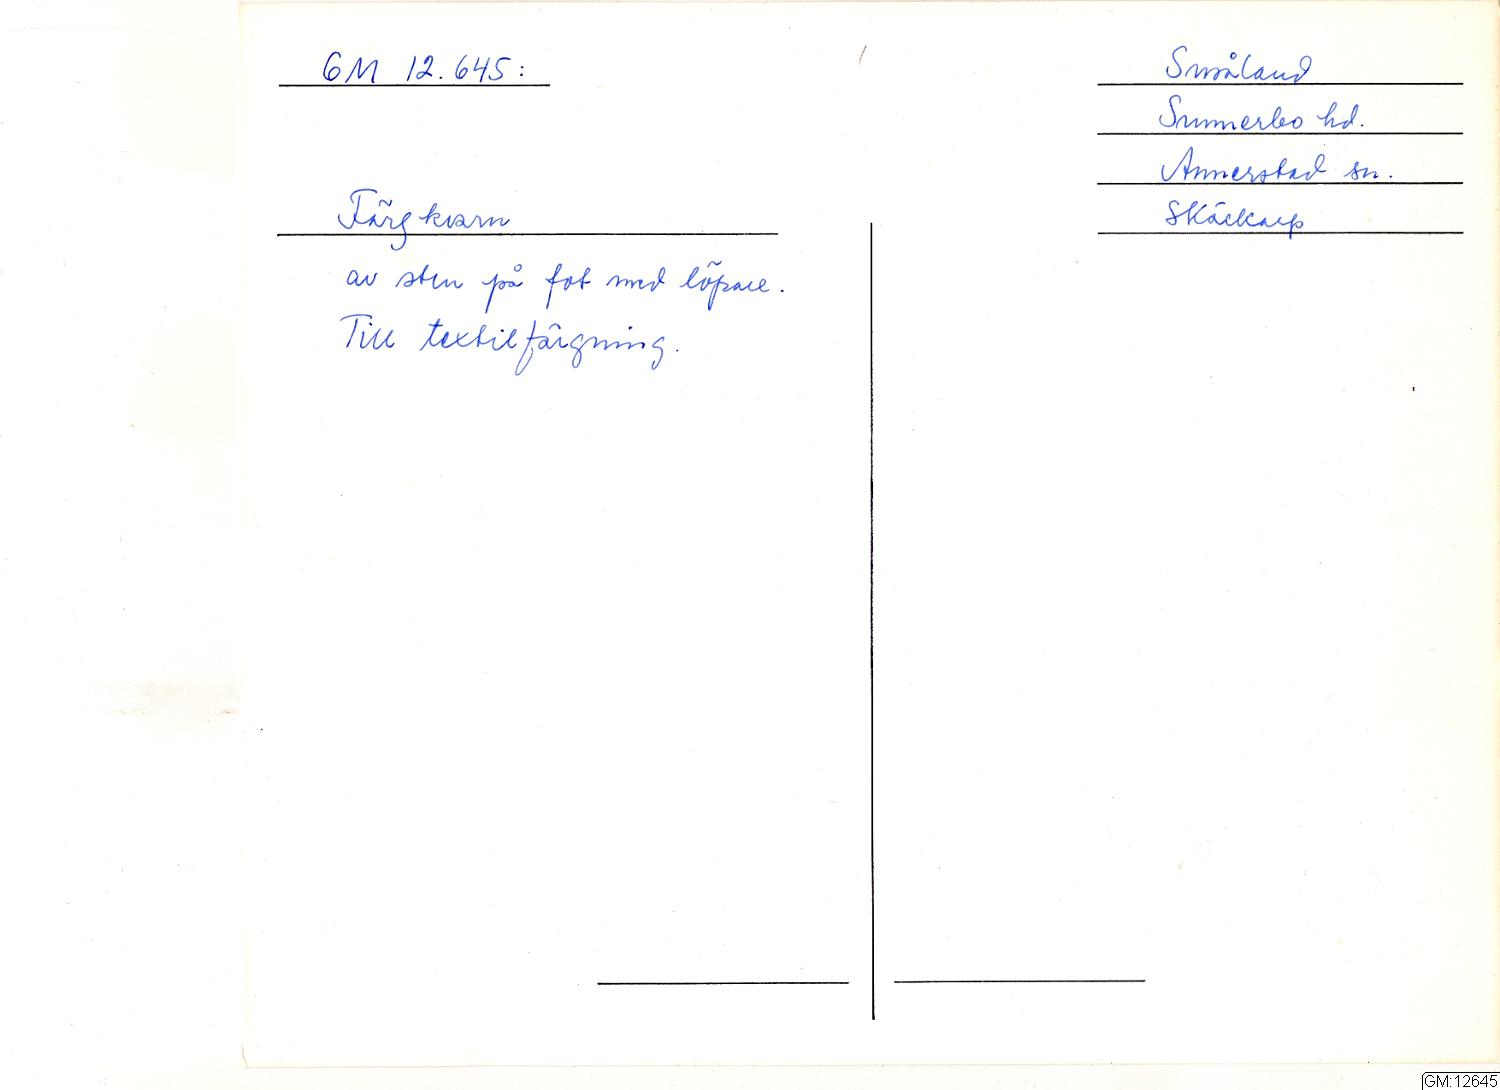 GM 12.645:
Småland
Sunnerbo hd.
Annerstad sn.
Skäckarp
Färgkvarn
av sten på fot med löpare.
Till textilfärgning.
GM:12645